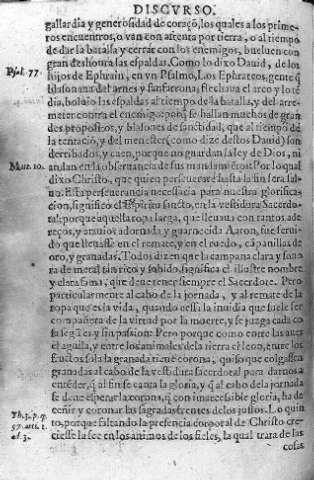 DISCVRSO.
gallardia y generosidad de coraçõ, los quales a los prime-
ros encuentros, o van con afrenta por tierra, o al tiempo
de dar la batalla y cerrar con los enemigos, bueluen con
gran deshonra las espaldas. Como lo dixo Dauid, de los
Psal. 77.
hijos de Ephrain, en vn Psalmo, Los Ephrateos, gente q̃
blasonaua del arnes y fanfarrona, flechaua el arco y lo tẽ
dia, boluio las espaldas al tiempo de la batalla, y del arre-
meter contra el enemigo: porq̃ se hallan muchos de gran
des propositos, y blasones de sanctidad, que al tiempo de
la tentaciõ, y del menester (como dize destos Dauid) son
derribados, y caen, porque no guardan la ley de Dios, ni
Mat. 10.
andan en la obseruancia de sus mandamiẽtos. Por lo qual
dixo Christo, que quien perseuerare hasta la fin sera sal-
uo. Esta perseuerancia necessaria para nuestra glorifica-
cion, significò el Espiritu sancto, en la vestidura Sacerdo-
tal: porque aquella ropa larga, que lleuaua con tantos ade-
reços, y atauios adornada y guarnecida Aaron, fue serui-
do que lleuasse en el remate, y en el ruedo, cãpanillas de
oro, y granadas. Todos dizen que la campana clara y sono
ra de metal tan rico y subido, significa el illustre nombre
y clara fama, que deue tener siempre el Sacerdote. Pero
particularmente al cabo de la jornada, y al remate de la
ropa que es la vida, quando cessa la inuidia que suele ser
compañera de la virtud por la muerte, y se juzga cada co
sa segũ es y sin passion: Pero porque como entre las aues
el aguila, y entre los animales de la tierra el leon, entre los
fructos sola la granada tiene corona, quiso que colgassen
granadas al cabo de la vestidura sacerdotal para darnos a
entẽder, q̃ al fin se canta la gloria, y q̃ al cabo de la jornada
se deue esperar la corona, q̃ con immarcesible gloria, ha de
Th. 3. p. q.
ceñir y coronar las sagradas frentes de los justos. Lo quin
57. arti. 1.
to, porque faltando la presencia corporal de Christo cre-
ad. 3.
ciesse la fee en los animos de los fieles, la qual trata de las
cosas